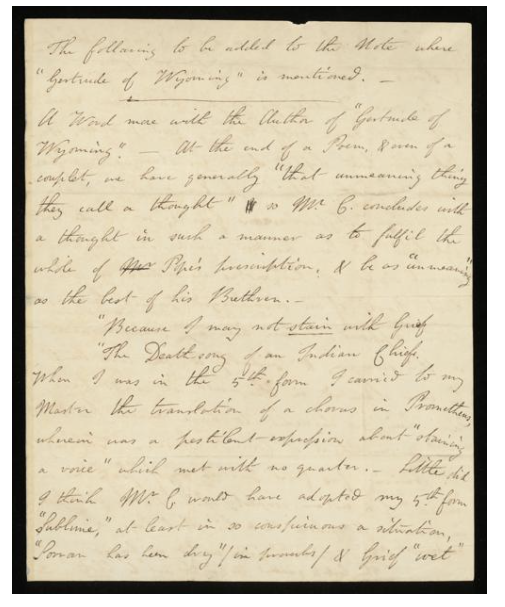 The following to be added to the Note where
"Gertrude of Wyoming" is mentioned. —
A Word more with the Author of "Gertrude of
Wyoming". — At the end of a Poem, & even of a
couplet, we have generally "that unmeaning thing
they call a thought" so Mr C. concludes with
a thought in such a manner as to fulfil the
whole of Pope's prescription, & be as "unmeaning"
as the best of his Brethren. —
"Because I may not stain with Grief
"The Death song of an Indian Chief.
When I was in the 5th form I carried to my
Master the translation of a chorus in Prometheus,
wherein was a pestilent expression about "staining
a voice" which met with no quarter. — Little did
I think Mr C. would have adopted my 5th form
"Sublime," at least in so conspicuous a situation,
"Sorrow has been dry" (in proverbs) & Grief "wet"